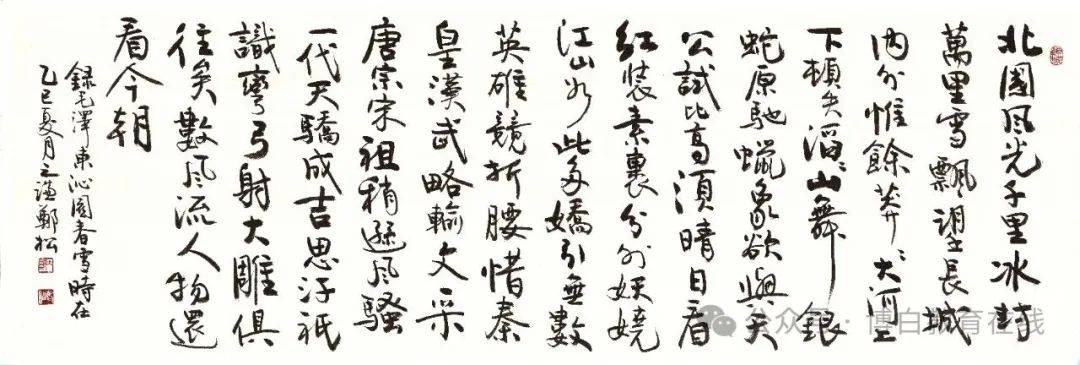 北國风光千里冰封
萬里雪飄望長城
内外惟餘莽〻大河上
下頓失滔〻山舞銀
蛇原馳蠟象欲與天
公試比高須晴日看
紅裝素裹分外妖嬈
江山如此多嬌引無數
英雄競折腰惜秦
皇漢武略輸文采
唐宗宋祖稍遜风騷
一代天驕成吉思汗祇
識彎弓射大雕俱
往矣數风流人物還
看今朝
錄毛澤東沁園春雪時在
乙巳夏月之謙鄭松
公众号 · 博白教育在线